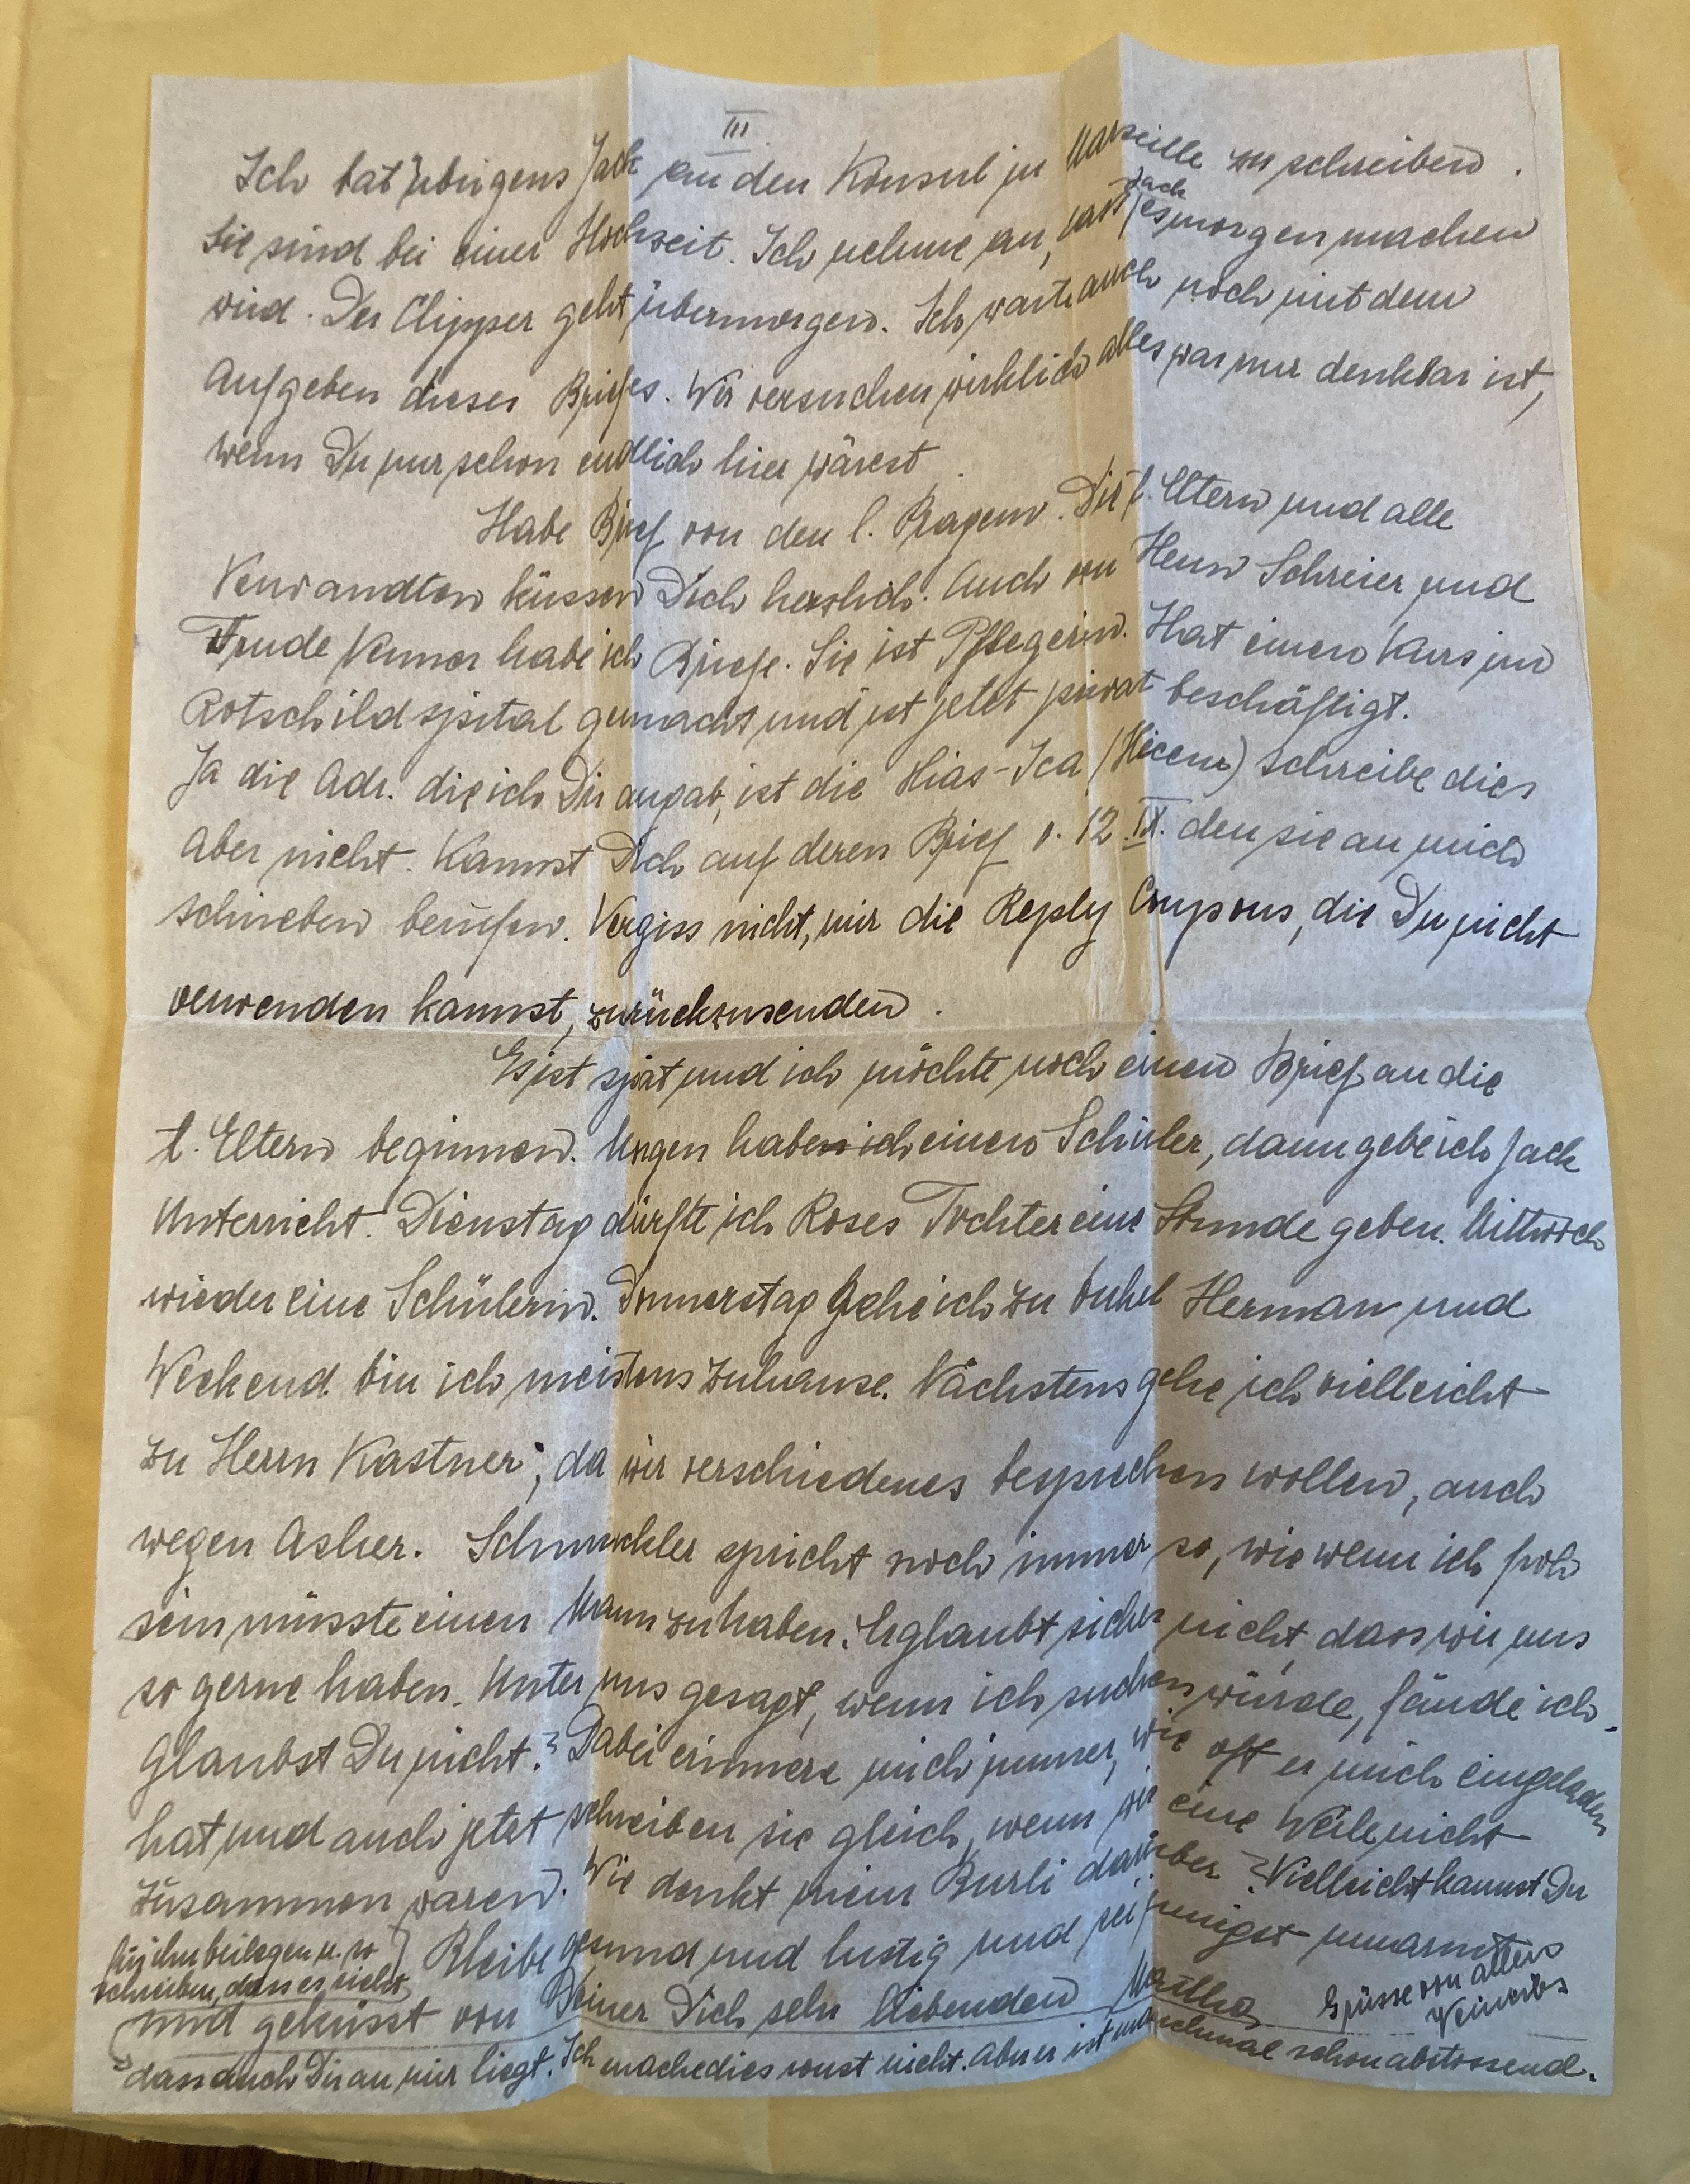 III
Ich bat übrigens Jack an den Konsul in Marseille zu schreiben.
Sie sind bei einer Hochzeit. Ich nehme an, dass Jack es morgen machen
wird. Der Clipper geht übermorgen. Ich warte auch noch mit dem
Aufgeben dieses Briefes. Wir versuchen wirklich alles was nur denkbar ist,
wenn Du nur schon endlich hier wärest.
Habe Brief von den l. Pragern. Die l. Eltern und alle
Verwandten küssen Dich herzlich. Auch von Herrn Schreier und
Trude habe ich Briefe. Sie ist Pflegerin. Hat einen Kurs im
Rotschildspital gemacht und ist jetzt privat beschäftigt.
Ja die Adr. die ich Dir angab, ist die Hias-Ica (Hicem) schreibe dies
aber nicht. Kannst Dich auf deren Brief v. 12. IX. den sie an mich
schrieben berufen. Vergiss nicht, mir die Reply Coupons, die Du nicht
verwenden kannst, zurückzusenden.
Es ist spät und ich möchte noch einen Brief an die
l. Eltern beginnen. Morgen habe ich einen Schüler, dann gebe ich Jack
Unterricht. Dienstag dürfte ich Roses Tochter eine Stunde geben. Mittwoch
wieder eine Schülerin. Donnerstag gehe ich zu Onkel Herman und
Weekend bin ich meistens zuhause. Nächstens gehe ich vielleicht
zu Herrn Kastner, da wir verschiedenes besprechen wollen, auch
wegen Asher. Schmuckler spricht noch immer so, wie wenn ich froh
sein müsste einen Mann zu haben. Er glaubt sicher nicht, dass wir uns
so gerne haben. Unter uns gesagt, wenn ich suchen würde, fände ich.
Glaubst Du nicht? Dabei erinnere mich immer, wie oft er mich eingeladen
hat und auch jetzt schreiben sie gleich, wenn wir eine Weile nicht
zusammen waren. Wie denkt mein Burli darüber? Vielleicht kannst Du
für ihn beilegen u. so
schreiben, dass es nicht
Bleibe gesund und lustig und sei innigst umarmt
und geküsst von Deiner Dich sehr liebenden Martha
Grüsse von allen
dass auch Dir an mir liegt. Ich mache dies sonst nicht. Aber es ist manchmal schon abstossend.